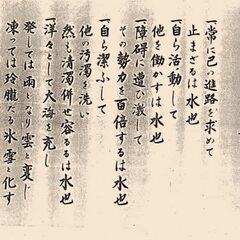 一、常に己の進路を求めて
止まざるは水也
一、自ら活動して
他を働かすは水也
一、障碍に遭ひ激して
その勢力を百倍するは水也
一、自ら潔ふして
他の汚濁を洗い
然も清濁併せ容るるは水也
一、洋々として大海を充し
発しては雨となり雲と変じ
凍っては玲朧たる氷雪と化す